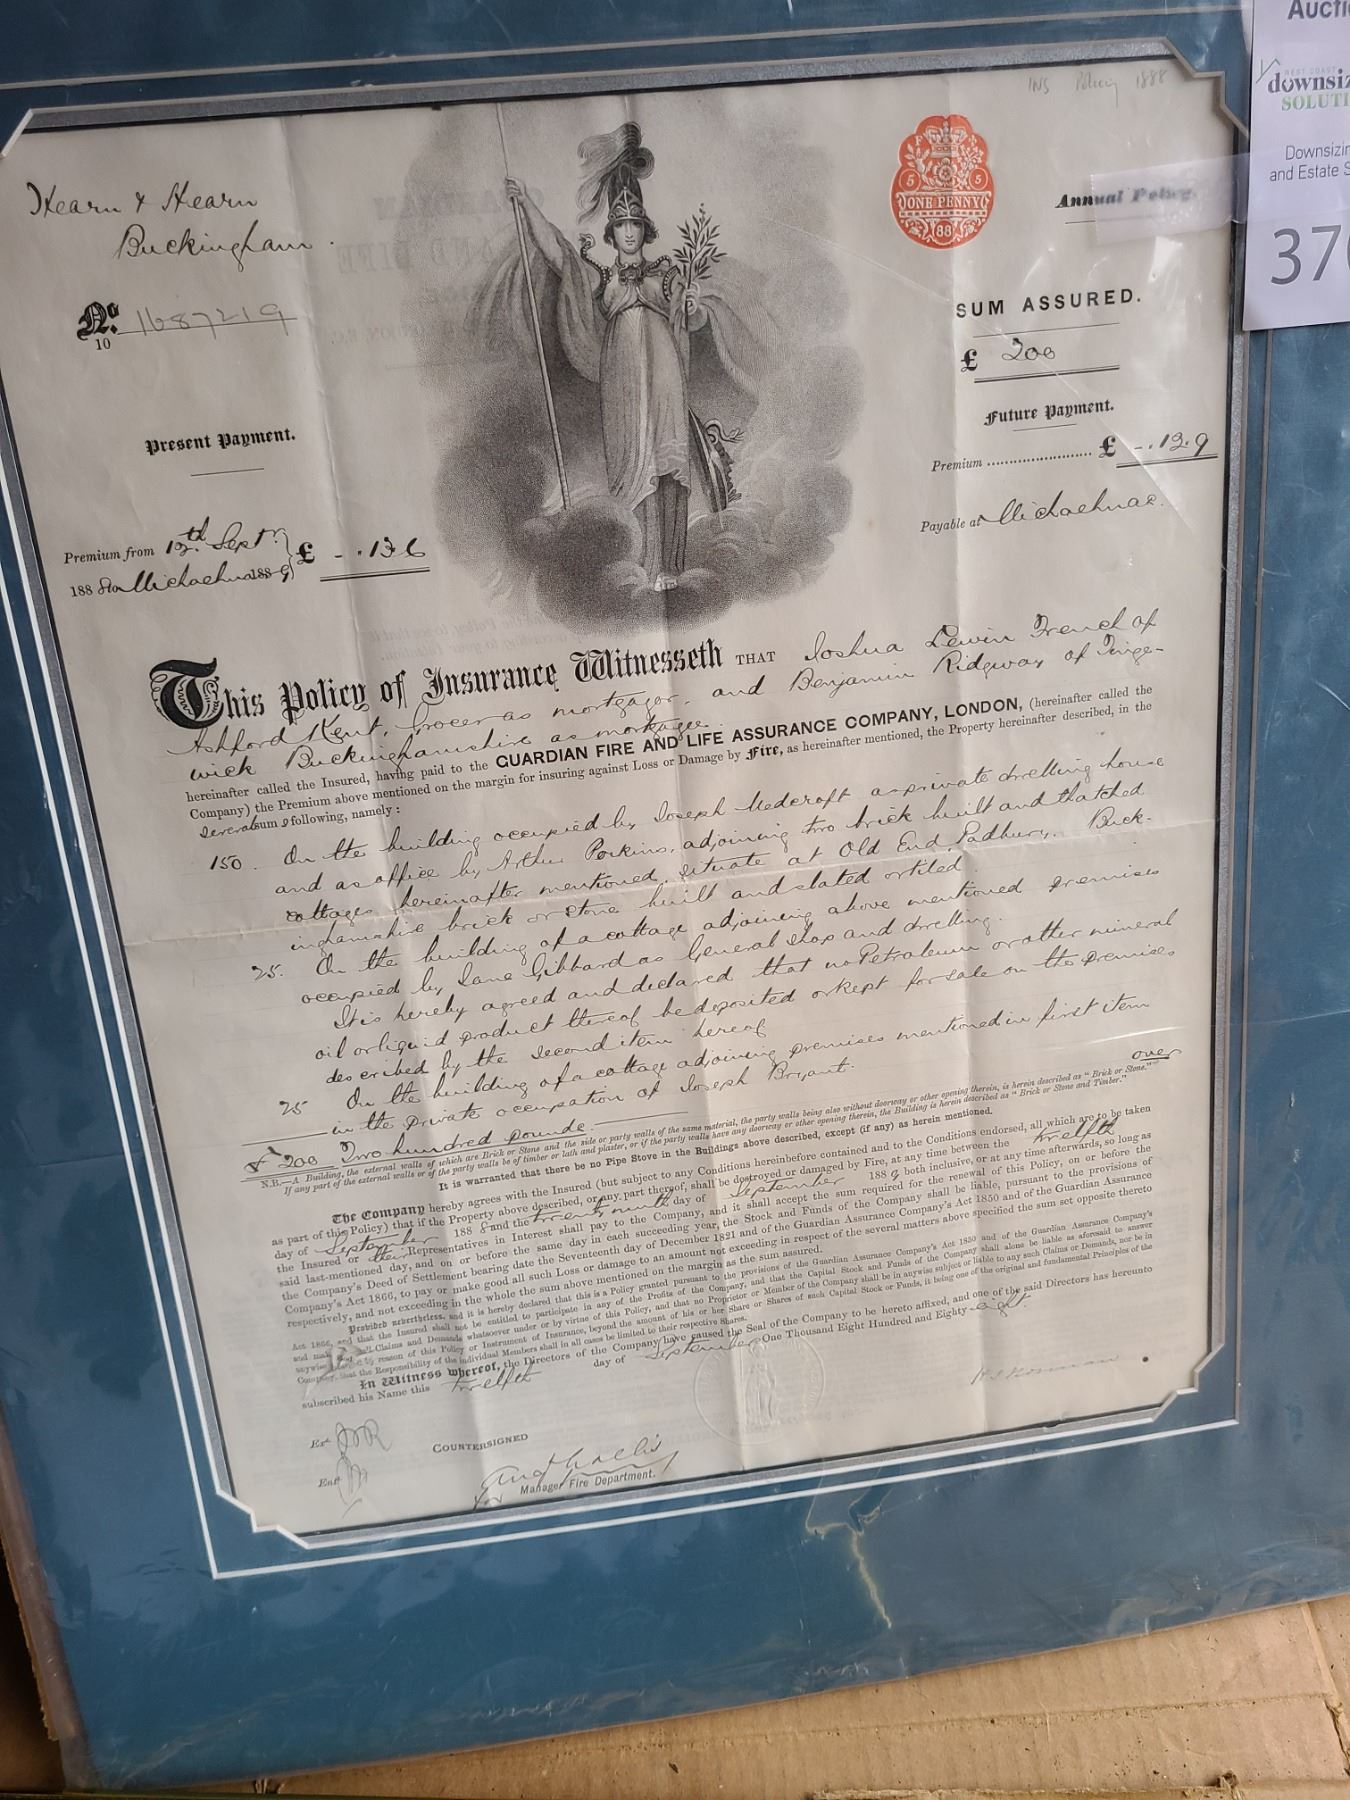 INS Policy 1888
Auctio
WEST COAST
downsiz
SOLUTI
Downsizin
and Estate S
370
Hearn & Hearn
Buckingham.
No. 1687219
10
ONE PENNY
5 5
88
Annual Policy.
SUM ASSURED.
£ 200
Present Payment.
Future Payment.
Premium £ -.12.9
Payable at Michaelmas.
Premium from 12th Sept.
1888 to Michaelmas 1889 } £ -.13.6
This Policy of Insurance Witnesseth THAT Joshua Lewin French of
Ashford Kent, Grocer as mortgagor, and Benjamin Ridgway of Tinge-
wick Buckinghamshire as mortgagee
hereinafter called the Insured, having paid to the GUARDIAN FIRE AND LIFE ASSURANCE COMPANY, LONDON, (hereinafter called the
Company) the Premium above mentioned on the margin for insuring against Loss or Damage by Fire, as hereinafter mentioned, the Property hereinafter described, in the
several sums following, namely:
150. On the building occupied by Joseph Medcroft as private dwelling house
and as office by Arthur Perkins, adjoining two brick built and thatched
cottages hereinafter mentioned, situate at Old End, Padbury, Buck-
inghamshire brick or stone built and slated or tiled
25. On the building of a cottage adjoining above mentioned premises
occupied by Jane Gibbard as General Shop and dwelling.
It is hereby agreed and declared that no Petroleum or other mineral
oil or liquid product thereof be deposited or kept for sale on the premises
described by the second item hereof
25 On the building of a cottage adjoining premises mentioned in first item
in the private occupation of Joseph Bryant.
over
£ 200 Two hundred pounds.
N.B.—A Building, the external walls of which are Brick or Stone and the side or party walls of the same material, the party walls being also without doorway or other opening therein, is herein described as "Brick or Stone."
If any part of the external walls or of the party walls be of timber or lath and plaster, or if the party walls have any doorway or other opening therein, the Building is herein described as "Brick or Stone and Timber."
It is warranted that there be no Pipe Stove in the Buildings above described, except (if any) as herein mentioned.
The Company hereby agrees with the Insured (but subject to any Conditions hereinbefore contained and to the Conditions endorsed, all which are to be taken
as part of this Policy) that if the Property above described, or any part thereof, shall be destroyed or damaged by Fire, at any time between the twelfth
day of September 1888 and the twenty ninth day of September 1889 both inclusive, or at any time afterwards, so long as
the Insured or their Representatives in Interest shall pay to the Company, and it shall accept the sum required for the renewal of this Policy, on or before the
said last-mentioned day, and on or before the same day in each succeeding year, the Stock and Funds of the Company shall be liable, pursuant to the provisions of
the Company's Deed of Settlement bearing date the Seventeenth day of December 1821 and of the Guardian Assurance Company's Act 1850 and of the Guardian Assurance
Company's Act 1866, to pay or make good all such Loss or damage to an amount not exceeding in respect of the several matters above specified the sum set opposite thereto
respectively, and not exceeding in the whole the sum above mentioned on the margin as the sum assured.
Provided nevertheless, and it is hereby declared that this is a Policy granted pursuant to the provisions of the Guardian Assurance Company's Act 1850 and of the Guardian Assurance Company's
Act 1866, and that the Insured shall not be entitled to participate in any of the Profits of the Company, and that the Capital Stock and Funds of the Company shall alone be liable as aforesaid to answer
and make good all Claims and Demands whatsoever under or by virtue of this Policy, and that no Proprietor or Member of the Company shall be in anywise subject or liable to any such Claims or Demands, nor be in
anywise by reason of this Policy or Instrument of Insurance, beyond the amount of his or her Share or Shares of such Capital Stock or Funds, it being one of the original and fundamental Principles of the
Company, that the Responsibility of the individual Members shall in all cases be limited to their respective Shares.
In Witness whereof, the Directors of the Company have caused the Seal of the Company to be hereto affixed, and one of the said Directors has hereunto
subscribed his Name this twelfth day of September One Thousand Eight Hundred and Eighty-eight.
Exd.
Entd.
COUNTERSIGNED
Manager Fire Department.